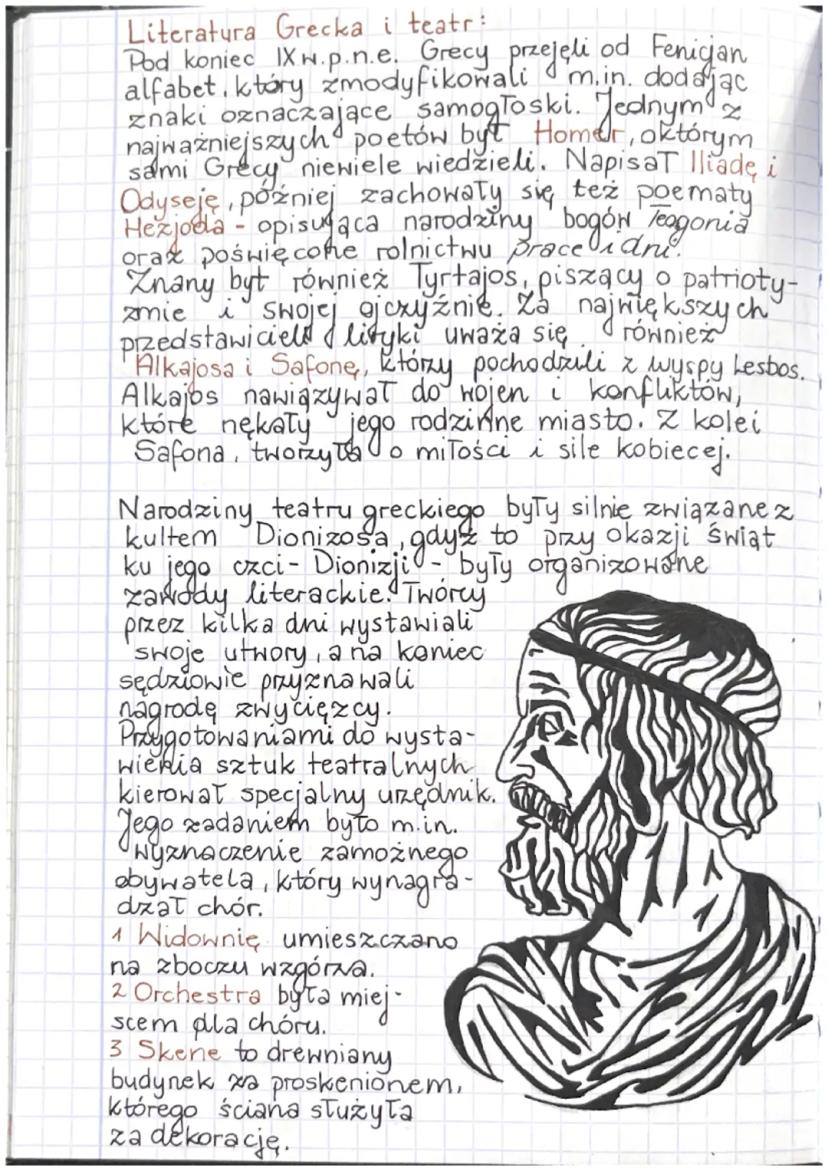 Literatura Grecka i teatr:
Pod koniec IX w.p.n.e. Grecy przejęli od Fenicjan
alfabet, który zmodyfikowali m.in. dodając
znaki oznaczające samogłoski. Jednym z
najważniejszych poetów był Homer, o którym
sami Grecy niewiele wiedzieli. Napisał Iliadę i
Odyseję, później zachowały się też poematy
Hezjoda - opisująca narodziny bogów Teogonia
oraz poświęcone rolnictwu prace i dni.
Znany był również Tyrtajos, piszący o patrioty-
zmie i swojej ojczyźnie. Za największych
przedstawicieli liryki uważa się również
Alkajosa i Safonę, którzy pochodzili z wyspy Lesbos.
Alkajos nawiązywał do wojen i konfliktów,
które nękały jego rodzinne miasto. Z kolei
Safona, tworzyła o miłości i sile kobiecej.
Narodziny teatru greckiego były silnie związane z
kultem Dionizosa, gdyż to przy okazji świąt
ku jego czci - Dionizji - były organizowane
zawody literackie. Twórcy
przez kilka dni wystawiali
swoje utwory, a na koniec
sędziowie przyznawali
nagrodę zwycięzcy.
Przygotowaniami do wysta-
wienia sztuk teatralnych
kierował specjalny urzędnik.
Jego zadaniem było m.in.
wyznaczenie zamożnego
obywatela, który wynagra-
dzał chór.
1 Widownię umieszczano
na zboczu wzgórza.
2 Orchestra była miej-
scem dla chóru.
3 Skene to drewniany
budynek za proskenionem,
którego ściana służyła
za dekorację.